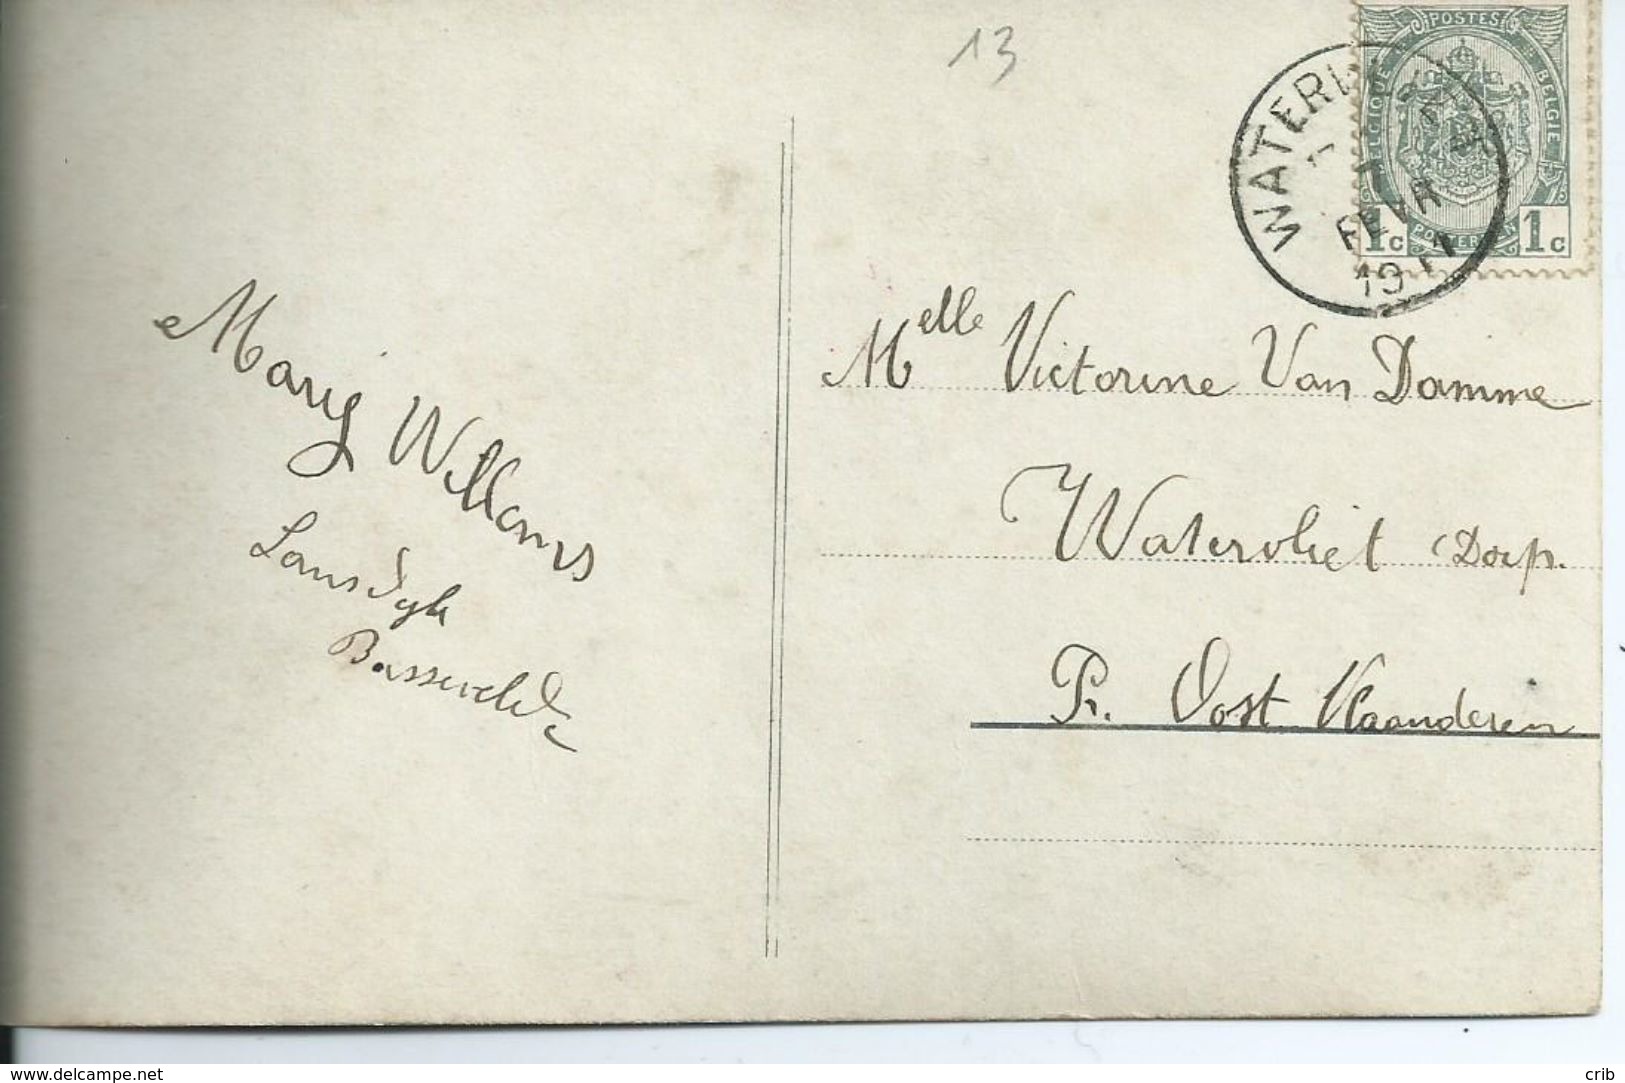 13
POSTES
BELGIQUE
BELGIE
POSTERIJEN
1c
1c
FEVR
Marij Willems
Landsdyk
Bassevelde
Melle Victorine Van Damme
Watervliet Dorp.
Pr. Oost Vlaanderen
www.delcampe.net
crib